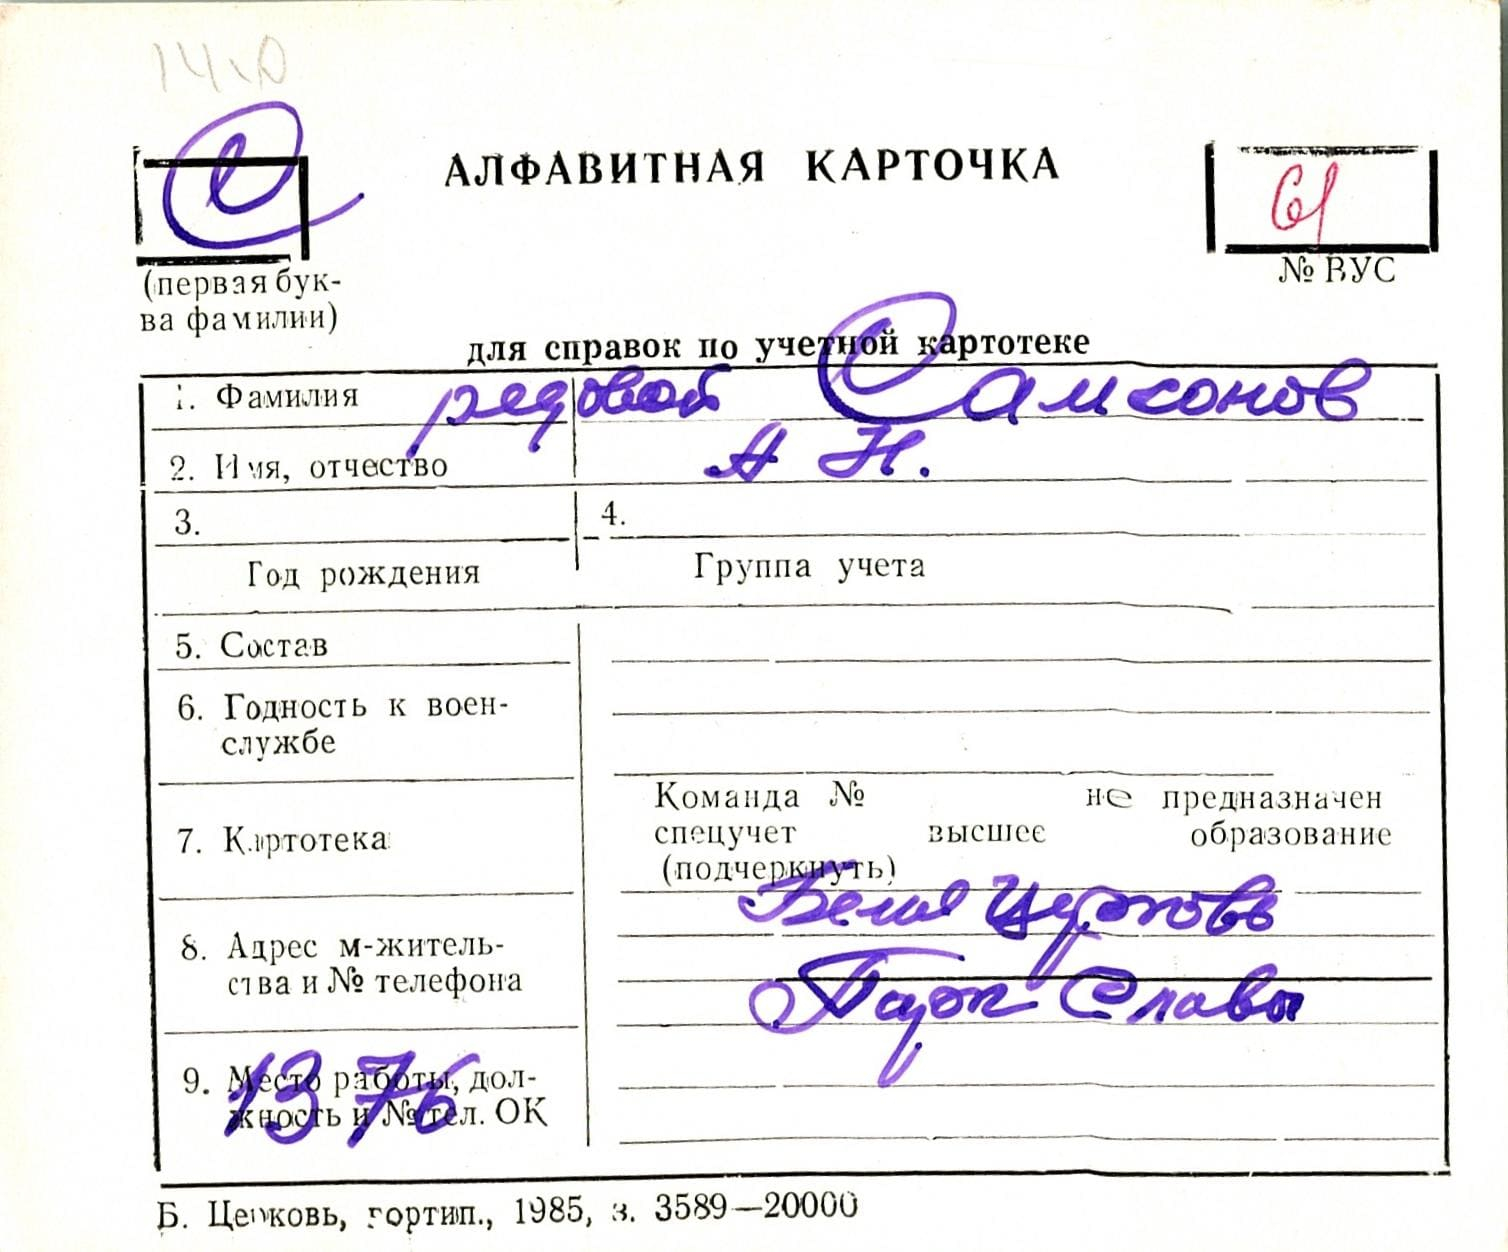 С
АЛФАВИТНАЯ КАРТОЧКА
61
(первая бук-
ва фамилии)
№ ВУС
для справок по учетной картотеке
1. Фамилия рядовой Самсонов
2. Имя, отчество А Н.
3.
4.
Год рождения
Группа учета
5. Состав
6. Годность к воен-
службе
7. Картотека
Команда № не предназначен
спецучет высшее образование
(подчеркнуть)
8. Адрес м-житель-
ства и № телефона
Белая Церковь
Парк Славы
9. Место работы, дол-
жность и № тел. ОК
1376
Б. Церковь, гортип., 1985, з. 3589—20000